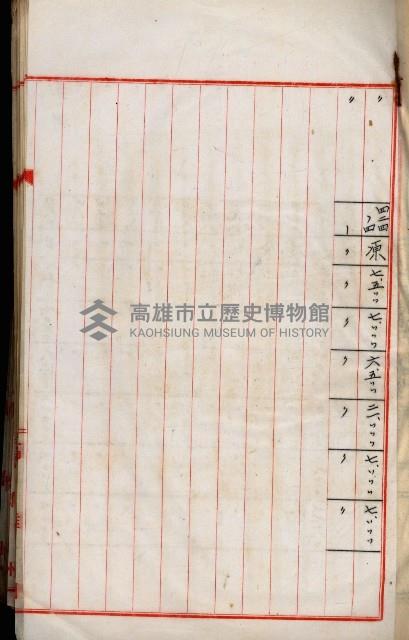 〃 四二四ノ四 原 七、五〃〃 七、〃〃〃 六、五〃〃 二、〃〃〃 七、〃〃〃 七、〃〃〃
〃 〃 〃 〃 〃 〃 〃 〃
高雄市立歷史博物館
KAOHSIUNG MUSEUM OF HISTORY